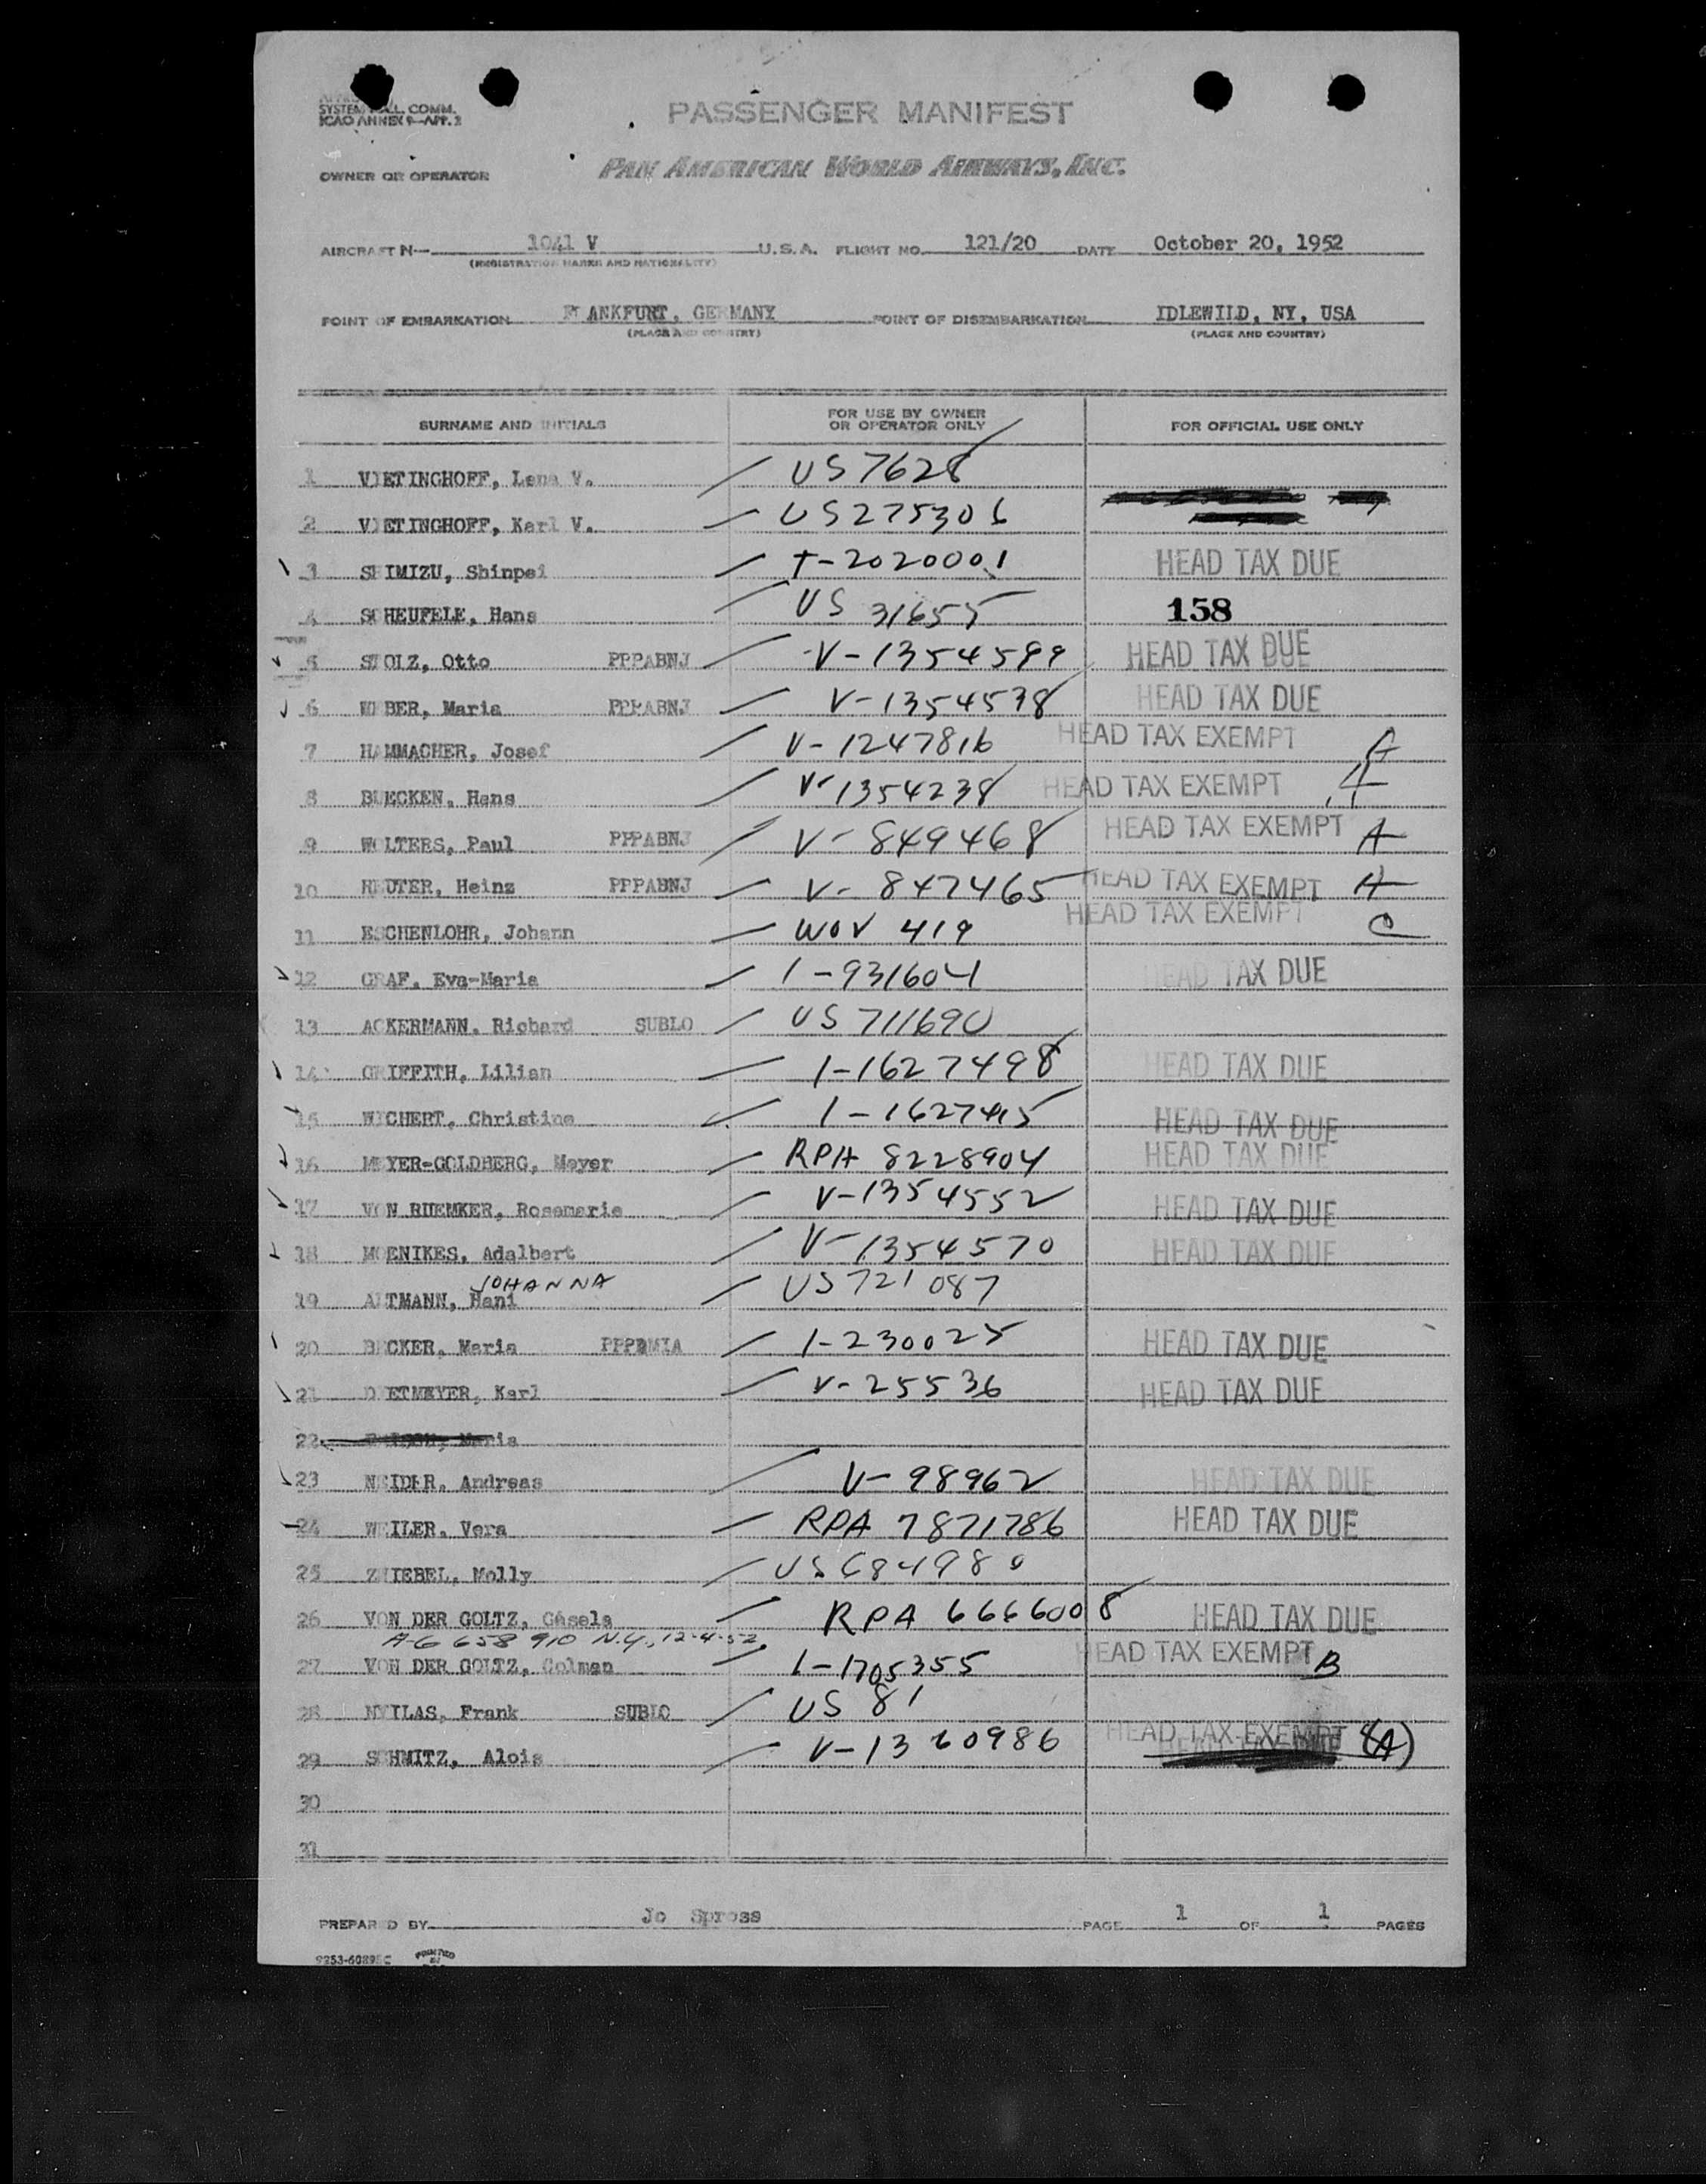 SYSTEM COMM.
ICAO ANNEX 9—APP. 2
PASSENGER MANIFEST
OWNER OR OPERATOR PAN AMERICAN WORLD AIRWAYS, INC.
AIRCRAFT N— 1041 V U.S.A. FLIGHT NO. 121/20 DATE October 20, 1952
(REGISTRATION MARKS AND NATIONALITY)
POINT OF EMBARKATION FRANKFURT, GERMANY POINT OF DISEMBARKATION IDLEWILD, NY, USA
(PLACE AND COUNTRY) (PLACE AND COUNTRY)
SURNAME AND INITIALS FOR USE BY OWNER OR OPERATOR ONLY FOR OFFICIAL USE ONLY
1 VIETINGHOFF, Lena V. US 7628
2 VIETINGHOFF, Karl V. US 275306
3 SHIMIZU, Shinpei T-2020001 HEAD TAX DUE
4 SCHEUFELE, Hans US 31655 158
5 STOLZ, Otto PPPABNJ V-1354599 HEAD TAX DUE
6 WEBER, Maria PPPABNJ V-1354538 HEAD TAX DUE
7 HAMMACHER, Josef V-1247816 HEAD TAX EXEMPT
8 BUECKEN, Hans V-1354238 HEAD TAX EXEMPT A
9 WOLTERS, Paul PPPABNJ V-849468 HEAD TAX EXEMPT A
10 REUTER, Heinz PPPABNJ V-847465 HEAD TAX EXEMPT A
11 ESCHENLOHR, Johann WOV 419 HEAD TAX EXEMPT C
12 GRAF, Eva-Maria 1-931604 HEAD TAX DUE
13 ACKERMANN, Richard SUBLO US 711690
14 GRIFFITH, Lilian 1-1627498 HEAD TAX DUE
15 WICHERT, Christine 1-1627415 HEAD TAX DUE
16 MEYER-GOLDBERG, Meyer RPA 8228904 HEAD TAX DUE
17 VON RUEMKER, Rosemarie V-1354552 HEAD TAX DUE
18 MOENIKES, Adalbert V-1354570 HEAD TAX DUE
JOHANNA
19 ALTMANN, Hani US 721087
20 BECKER, Maria 1-230025 HEAD TAX DUE
21 DIETMEYER, Karl V-25536 HEAD TAX DUE
22 Maria
23 NEIDER, Andreas V-98962 HEAD TAX DUE
24 WEILER, Vera RPA 7871786 HEAD TAX DUE
25 ZWIEBEL, Molly US 684980
26 VON DER GOLTZ, Gisela RPA 6666008 HEAD TAX DUE
A-6 658 910 N.Y. 12-4-52
27 VON DER GOLTZ, Colman 1-1705355 HEAD TAX EXEMPT B
28 NYILAS, Frank SUBLO US 81
29 SCHMITZ, Alois V-1360986 HEAD TAX EXEMPT (A)
30
31
PREPARED BY Jo Spross PAGE 1 OF 1 PAGES